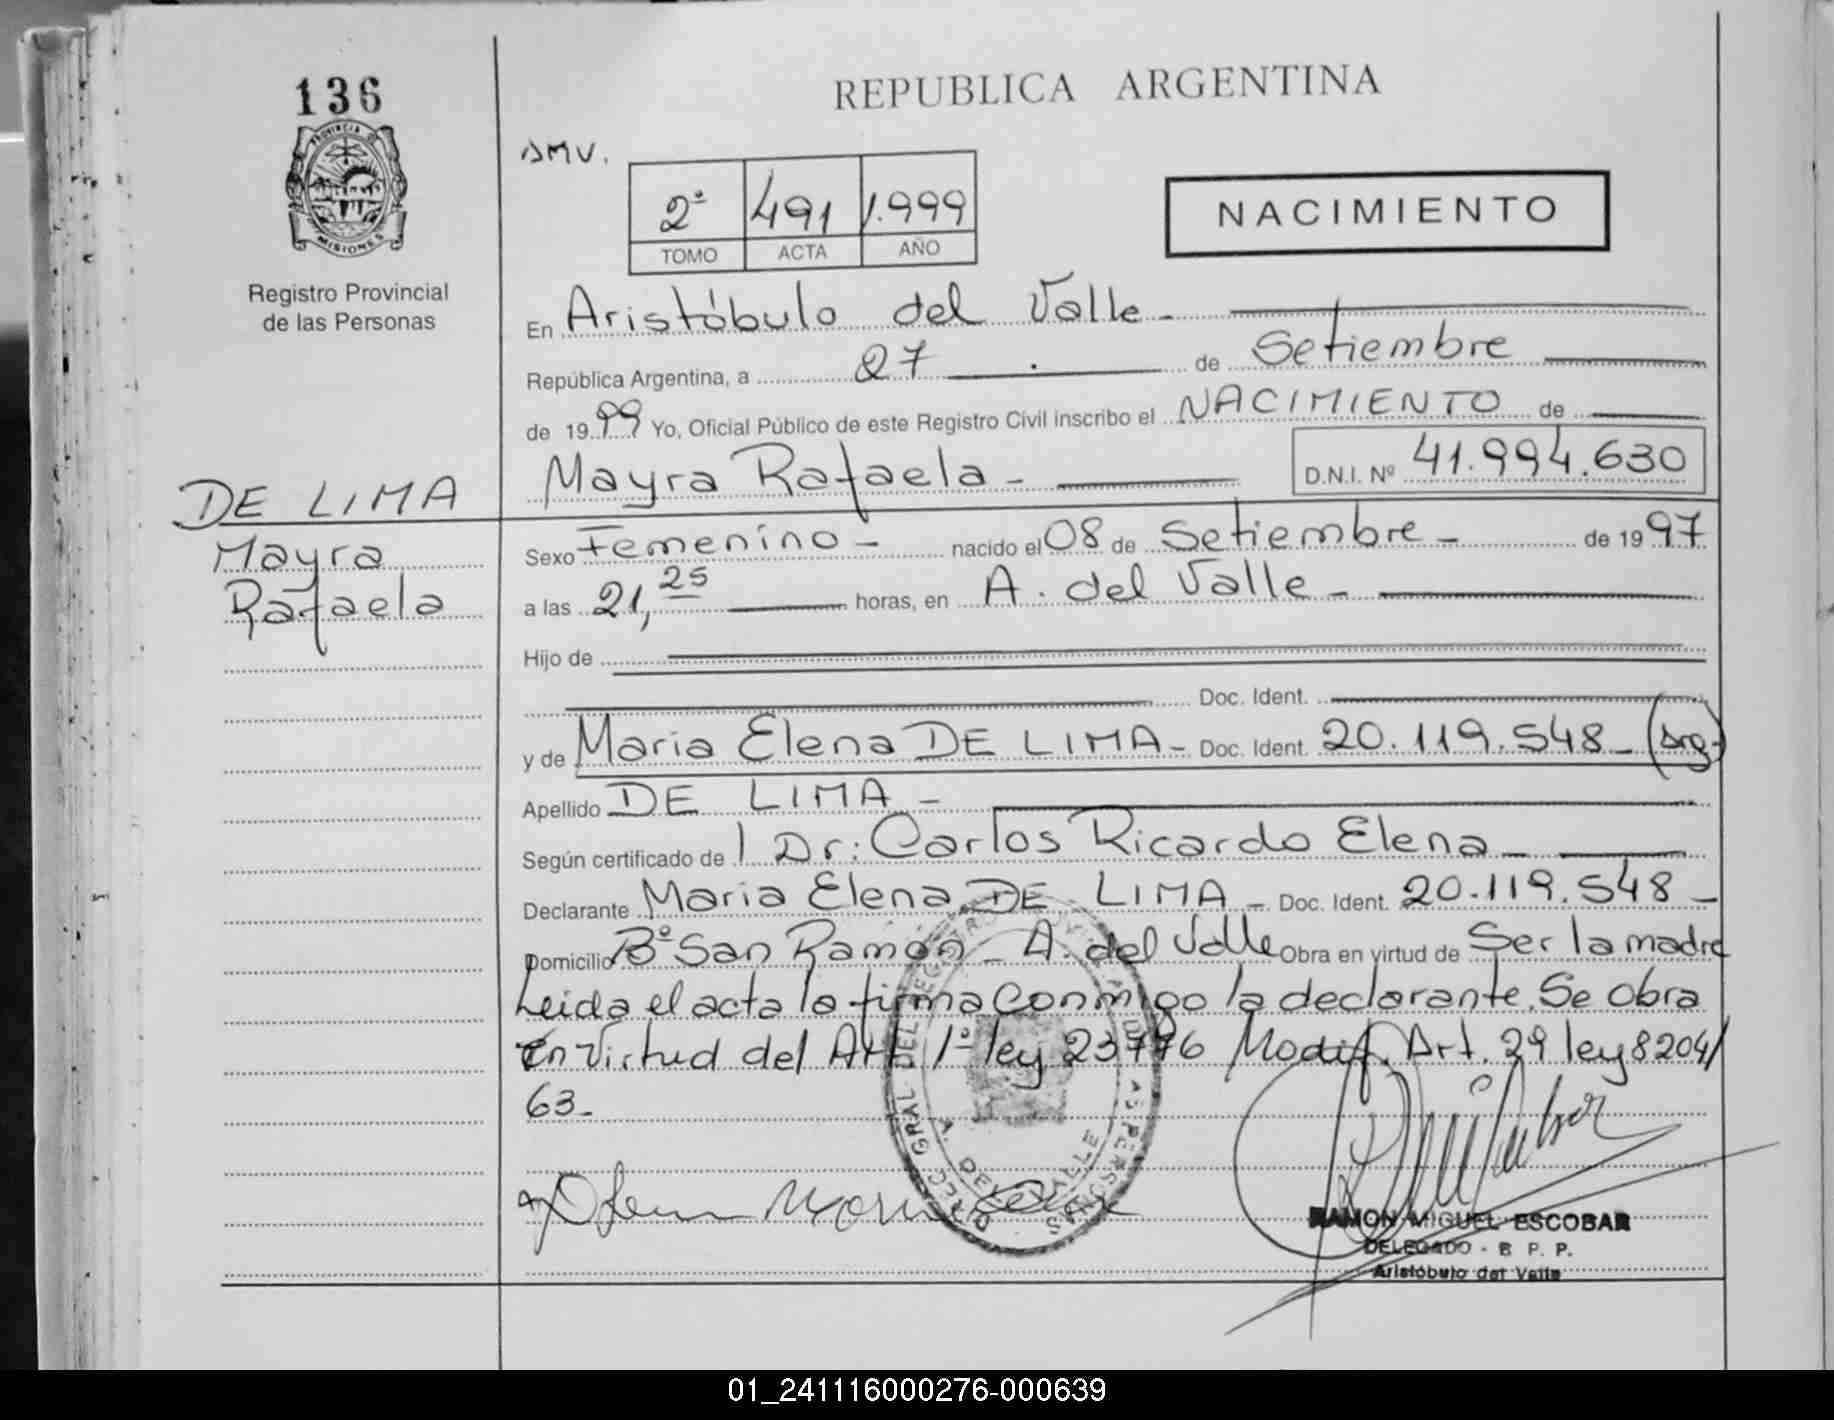 136
PROVINCIA D
MISIONES
Registro Provincial
de las Personas
DE LIMA
Mayra
Rafaela
REPUBLICA ARGENTINA
SMV.
2º 491 1.999
TOMO ACTA AÑO
NACIMIENTO
En Aristóbulo del Valle -
República Argentina, a 27 de Setiembre
de 1999 Yo, Oficial Público de este Registro Civil inscribo el NACIMIENTO de
Mayra Rafaela - D.N.I. Nº 41.994.630
Sexo Femenino - nacido el 08 de Setiembre - de 1997
a las 21,25 horas, en A. del Valle -
Hijo de
Doc. Ident.
y de Maria Elena DE LIMA - Doc. Ident. 20.119.548 - (Arg.)
Apellido DE LIMA -
Según certificado de Dr: Carlos Ricardo Elena -
Declarante Maria Elena DE LIMA - Doc. Ident. 20.119.548 -
Domicilio Bº San Ramón - A. del Valle Obra en virtud de Ser la madre
Leida el acta la firma conmigo la declarante. Se obra
en virtud del Art 1º ley 23776 Modif. Art. 29 ley 8204/
63 -
A. DEL VALLE
RAMON MIGUEL ESCOBAR
DELEGADO - R P. P.
Aristóbulo del Valle
01_241116000276-000639